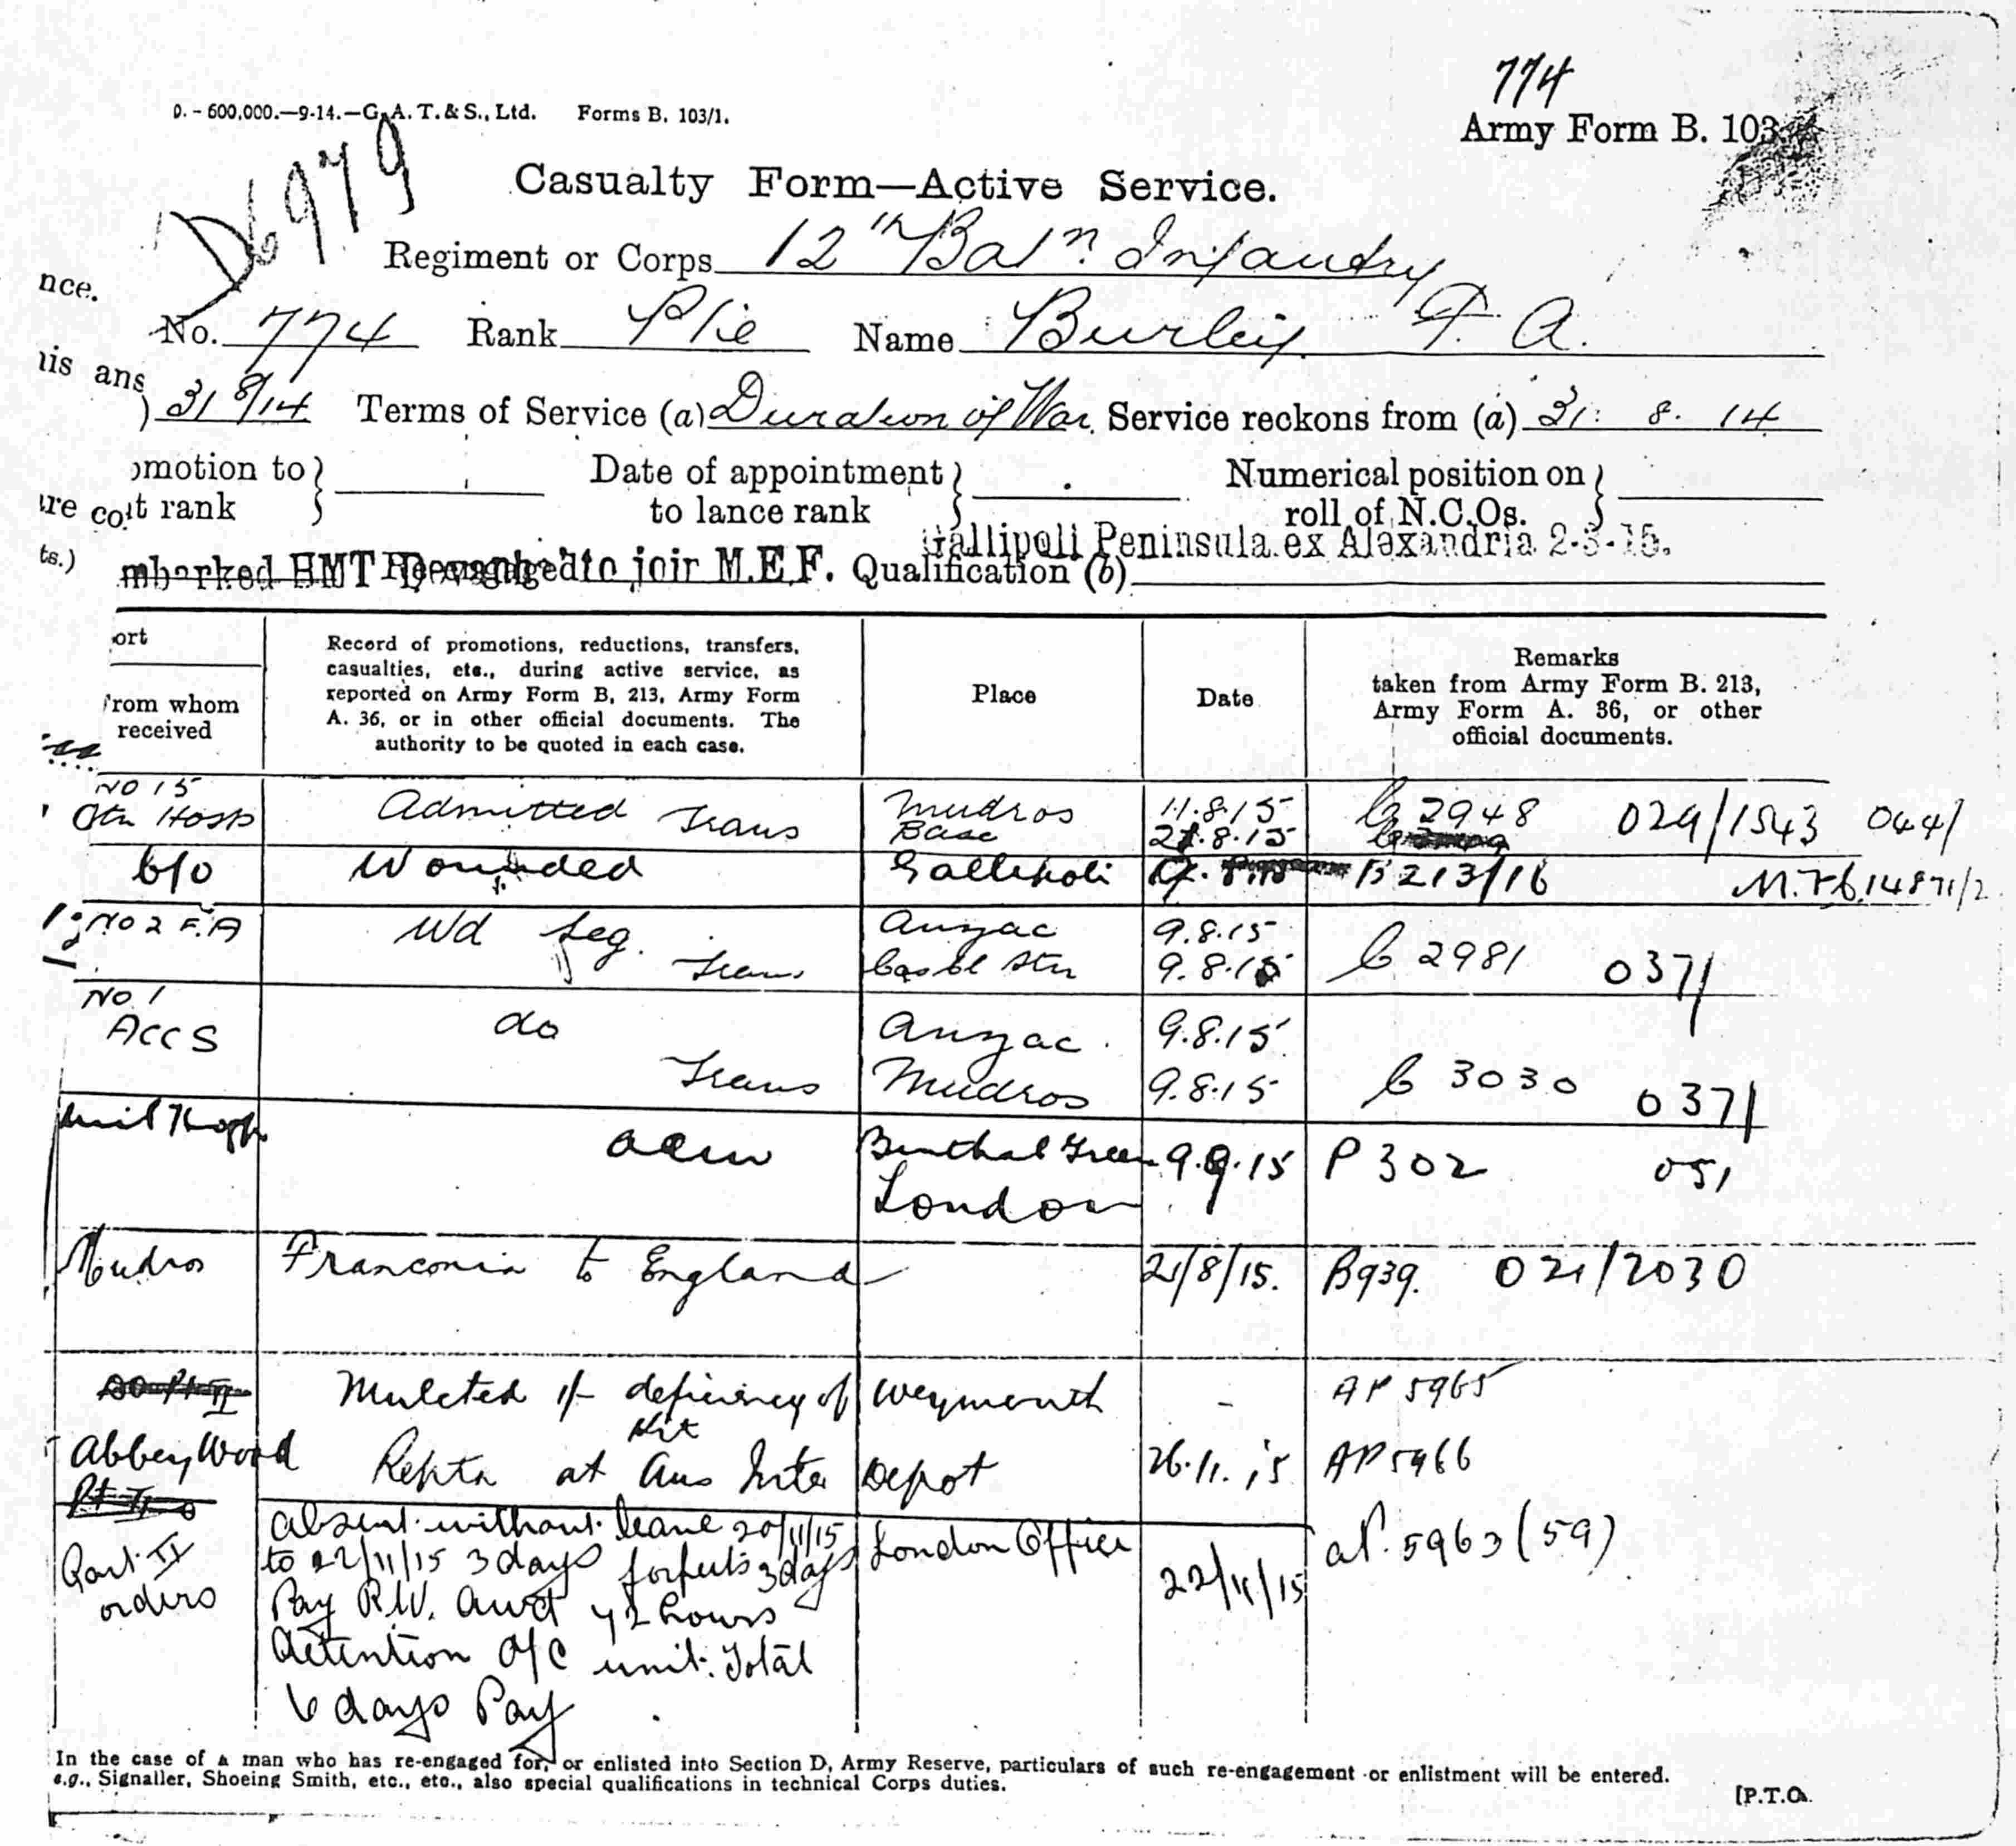 774
D. - 600,000.—9-14.—G. A. T. & S., Ltd. Forms B. 103/1.
Army Form B. 103.
D6979
Casualty Form—Active Service.
Regiment or Corps 12th Batn. Infantry
nce.
No. 774 Rank Pte Name Burley F. A.
his ans
) 31/8/14 Terms of Service (a) Duration of War. Service reckons from (a) 31. 8. 14
omotion to } Date of appointment } Numerical position on }
are co
nt rank to lance rank roll of N.C.Os.
Gallipoli Peninsula ex Alexandria 2-3-15.
ts.)
mbarked HMT Devanha to join M.E.F. Qualification (b)
ort
From whom received
Record of promotions, reductions, transfers,
casualties, etc., during active service, as
reported on Army Form B. 213, Army Form
A. 36, or in other official documents. The
authority to be quoted in each case.
Place
Date
Remarks
taken from Army Form B. 213,
Army Form A. 36, or other
official documents.
No 15
Stn Hosp Admitted Mudros 11.8.15 C 2948 029/1543 044/
Trans Base 21.8.15
C/O Wounded Gallipoli B213/16 14871/2
No 2 F.A Wd leg. Anzac 9.8.15 C 2981 037/
Trans Cas Cl Stn 9.8.15
No. 1
ACCS do Anzac. 9.8.15
Trans Mudros 9.8.15 C 3030 037/
Mil Hosp Adm Benthal Green 9.9.15 P 302 051
London
Mudros Franconia to England 21/8/15. B939. 021/2030
Mulcted 1/- deficiency of Kit Weymouth - AP 5965
Abbey Wood Reptd at Aus Inter Depot 26.11.15 AP 5966
Part II orders
Absent without leave 20/11/15 London Office 22/11/15 AP. 5963 (59)
to 22/11/15 3 days forfeits 3 days
Pay R.W. Awd 72 hours
detention O/C unit. Total
6 days Pay
In the case of a man who has re-engaged for, or enlisted into Section D, Army Reserve, particulars of such re-engagement or enlistment will be entered.
e.g., Signaller, Shoeing Smith, etc., etc., also special qualifications in technical Corps duties.
[P.T.O.